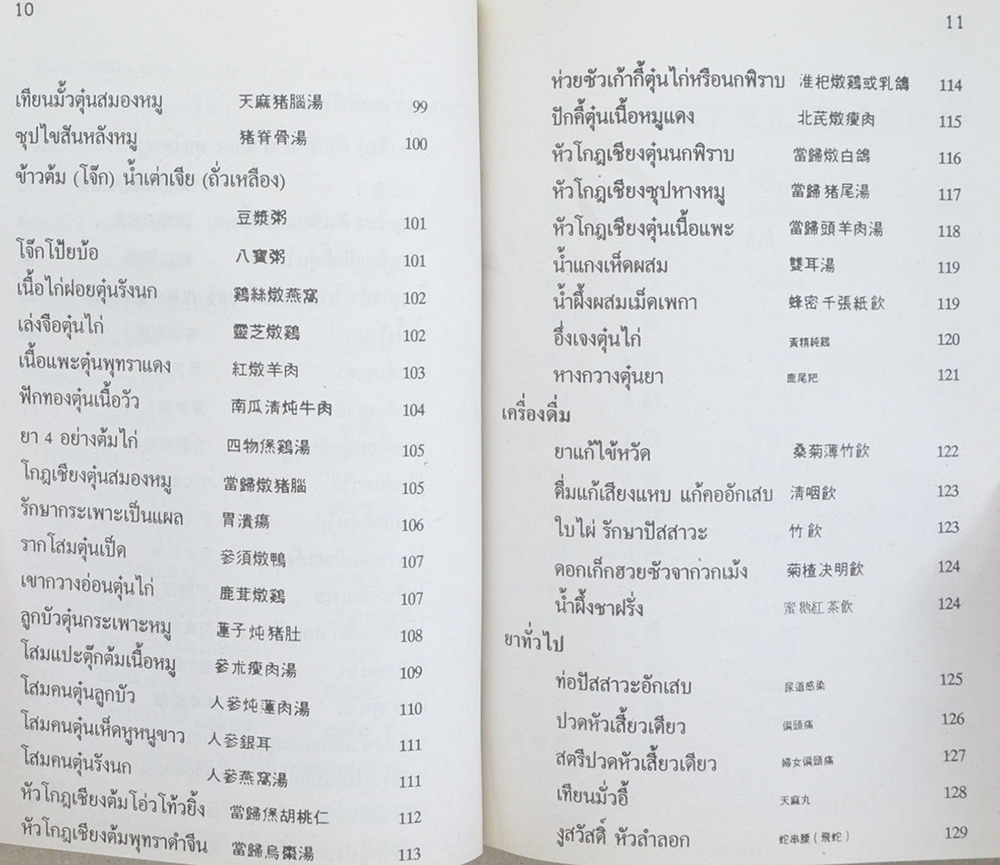 10
เทียนมั้วตุ๋นสมองหมู 天麻猪腦湯 99
ซุปไขสันหลังหมู 猪脊骨湯 100
ข้าวต้ม (โจ๊ก) น้ำเต่าเจีย (ถั่วเหลือง)
豆漿粥 101
โจ๊กโป้ยบ้อ 八寶粥 101
เนื้อไก่ฝอยตุ๋นรังนก 鷄絲燉燕窩 102
เล่งจือตุ๋นไก่ 靈芝燉鷄 102
เนื้อแพะตุ๋นพุทราแดง 紅燉羊肉 103
ฟักทองตุ๋นเนื้อวัว 南瓜清炖牛肉 104
ยา 4 อย่างต้มไก่ 四物煲鷄湯 105
โกฎเชียงตุ๋นสมองหมู 當歸燉猪腦 105
รักษากระเพาะเป็นแผล 胃潰瘍 106
รากโสมตุ๋นเป็ด 參須燉鴨 107
เขากวางอ่อนตุ๋นไก่ 鹿茸燉鷄 107
ลูกบัวตุ๋นกระเพาะหมู 蓮子炖猪肚 108
โสมแปะตุ๊กต้มเนื้อหมู 參朮瘦肉湯 109
โสมคนตุ๋นลูกบัว 人參炖蓮肉湯 110
โสมคนตุ๋นเห็ดหูหนูขาว 人參銀耳 111
โสมคนตุ๋นรังนก 人參燕窩湯 111
หัวโกฎเชียงต้มโอ่วโท้วยิ้ง 當歸煲胡桃仁 112
หัวโกฎเชียงต้มพุทราดำจีน 當歸烏棗湯 113
11
ห่วยซัวเก้ากี้ตุ๋นไก่หรือนกพิราบ 淮杞燉鷄或乳鴿 114
ปักกี้ตุ๋นเนื้อหมูแดง 北芪燉瘦肉 115
หัวโกฎเชียงตุ๋นนกพิราบ 當歸燉白鴿 116
หัวโกฎเชียงซุปหางหมู 當歸猪尾湯 117
หัวโกฎเชียงตุ๋นเนื้อแพะ 當歸頭羊肉湯 118
น้ำแกงเห็ดผสม 雙耳湯 119
น้ำผึ้งผสมเม็ดเพกา 蜂密千張紙飲 119
อึ่งเจงตุ๋นไก่ 黃精純鷄 120
หางกวางตุ๋นยา 鹿尾羓 121
เครื่องดื่ม
ยาแก้ไข้หวัด 桑菊薄竹飲 122
ดื่มแก้เสียงแหบ แก้คออักเสบ 清咽飲 123
ใบไผ่ รักษาปัสสาวะ 竹飲 123
ดอกเก็กฮวยซัวจากวกเม้ง 菊楂决明飲 124
น้ำผึ้งชาฝรั่ง 紅茶飲 124
ยาทั่วไป
ท่อปัสสาวะอักเสบ 尿道感染 125
ปวดหัวเสี้ยวเดียว 偏頭痛 126
สตรีปวดหัวเสี้ยวเดียว 婦女偏頭痛 127
เทียนมั่วอี้ 天麻丸 128
งูสวัสดิ์ หัวลำลอก 蛇串腰(飛蛇) 129